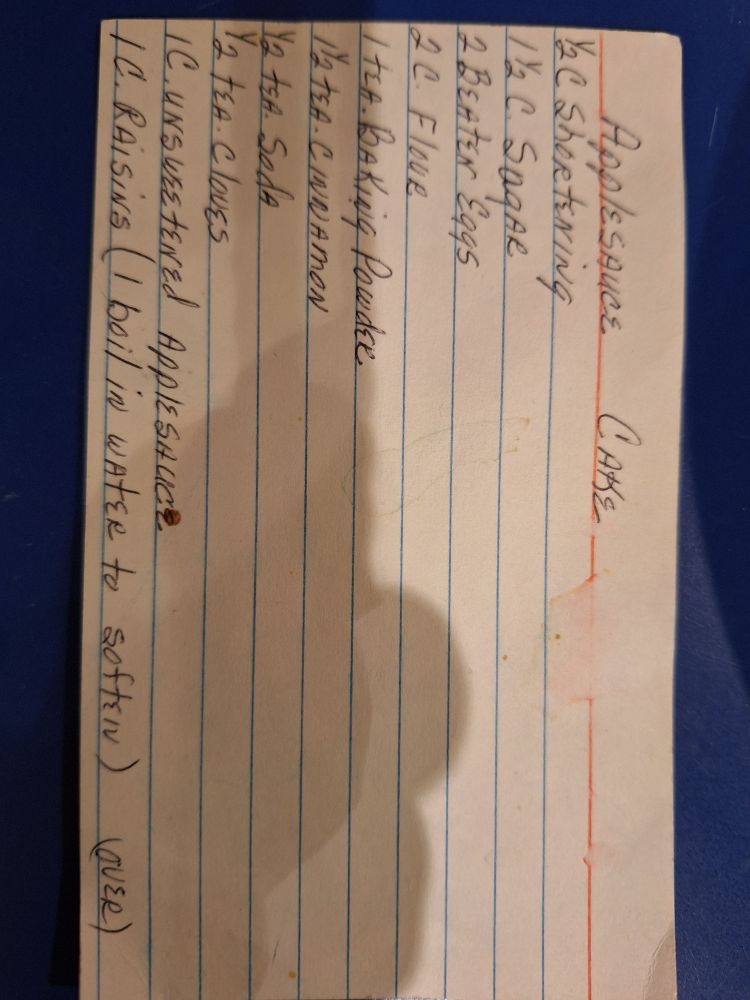 Applesauce Cake
½ C Shortening
1½ C. Sugar
2 Beaten Eggs
2 C. Flour
1 tea. Baking Powder
1½ tea. Cinnamon
½ tea. Soda
½ tea. Cloves
1 C. unsweetened Applesauce
1 C. Raisins (I boil in water to soften) (over)